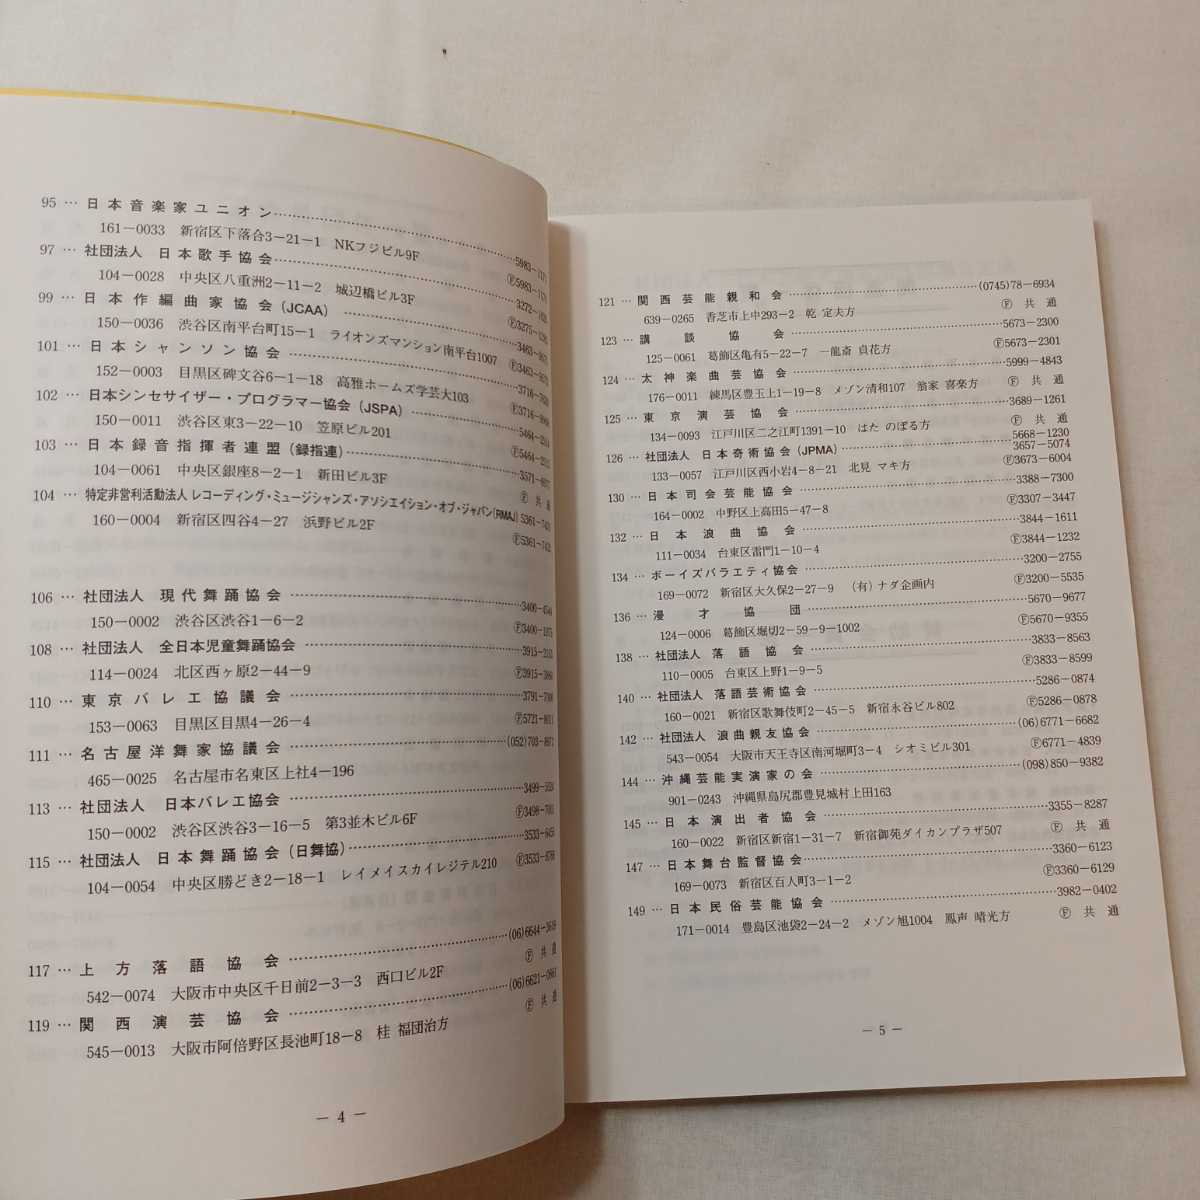 95 … 日本音楽家ユニオン
161－0033 新宿区下落合3－21－1 NKフジビル9F
97 … 社団法人 日本歌手協会
104－0028 中央区八重洲2－11－2 城辺橋ビル3F
99 … 日本作編曲家協会(JCAA)
150－0036 渋谷区南平台町15－1 ライオンズマンション南平台1007
101 … 日本シャンソン協会
152－0003 目黒区碑文谷6－1－18 高雅ホームズ学芸大103
102 … 日本シンセサイザー・プログラマー協会(JSPA)
150－0011 渋谷区東3－22－10 笠原ビル201
103 … 日本録音指揮者連盟(録指連)
104－0061 中央区銀座8－2－1 新田ビル3F
104 … 特定非営利活動法人 レコーディング・ミュージシャンズ・アソシエイション・オブ・ジャパン(RMAJ)
160－0004 新宿区四谷4－27 浜野ビル2F
106 … 社団法人 現代舞踊協会
150－0002 渋谷区渋谷1－6－2
108 … 社団法人 全日本児童舞踊協会
114－0024 北区西ヶ原2－44－9
110 … 東京バレエ協議会
153－0063 目黒区目黒4－26－4
111 … 名古屋洋舞家協議会
465－0025 名古屋市名東区上社4－196
113 … 社団法人 日本バレエ協会
150－0002 渋谷区渋谷3－16－5 第3並木ビル6F
115 … 社団法人 日本舞踊協会(日舞協)
104－0054 中央区勝どき2－18－1 レイメイスカイレジテル210
117 … 上方落語協会
542－0074 大阪市中央区千日前2－3－3 西口ビル2F Ⓕ 共通
119 … 関西演芸協会
545－0013 大阪市阿倍野区長池町18－8 桂 福団治方 Ⓕ 共通
－ 4 －
121 … 関西芸能親和会 (0745)78－6934
639－0265 香芝市上中293－2 乾 定夫方 Ⓕ 共通
123 … 講談協会 5673－2300
125－0061 葛飾区亀有5－22－7 一龍斎 貞花方 Ⓕ5673－2301
124 … 太神楽曲芸協会 5999－4843
176－0011 練馬区豊玉上1－19－8 メゾン清和107 翁家 喜楽方 Ⓕ 共通
125 … 東京演芸協会 3689－1261
134－0093 江戸川区二之江町1391－10 はた のぼる方 Ⓕ 共通
5668－1230
126 … 社団法人 日本奇術協会(JPMA) 3657－5074
133－0057 江戸川区西小岩4－8－21 北見 マキ方 Ⓕ3673－6004
130 … 日本司会芸能協会 3388－7300
164－0002 中野区上高田5－47－8 Ⓕ3307－3447
132 … 日本浪曲協会 3844－1611
111－0034 台東区雷門1－10－4 Ⓕ3844－1232
134 … ボーイズバラエティ協会 3200－2755
169－0072 新宿区大久保2－27－9 (有)ナダ企画内 Ⓕ3200－5535
136 … 漫才協団 5670－9677
124－0006 葛飾区堀切2－59－9－1002 Ⓕ5670－9355
138 … 社団法人 落語協会 3833－8563
110－0005 台東区上野1－9－5 Ⓕ3833－8599
140 … 社団法人 落語芸術協会 5286－0874
160－0021 新宿区歌舞伎町2－45－5 新宿永谷ビル802 Ⓕ5286－0878
142 … 社団法人 浪曲親友協会 (06)6771－6682
543－0054 大阪市天王寺区南河堀町3－4 シオミビル301 Ⓕ6771－4839
144 … 沖縄芸能実演家の会 (098)850－9382
901－0243 沖縄県島尻郡豊見城村上田163
145 … 日本演出者協会 3355－8287
160－0022 新宿区新宿1－31－7 新宿御苑ダイカンプラザ507 Ⓕ 共通
147 … 日本舞台監督協会 3360－6123
169－0073 新宿区百人町3－1－2 Ⓕ3360－6129
149 … 日本民俗芸能協会 3982－0402
171－0014 豊島区池袋2－24－2 メゾン旭1004 鳳声 晴光方 Ⓕ 共通
－ 5 －